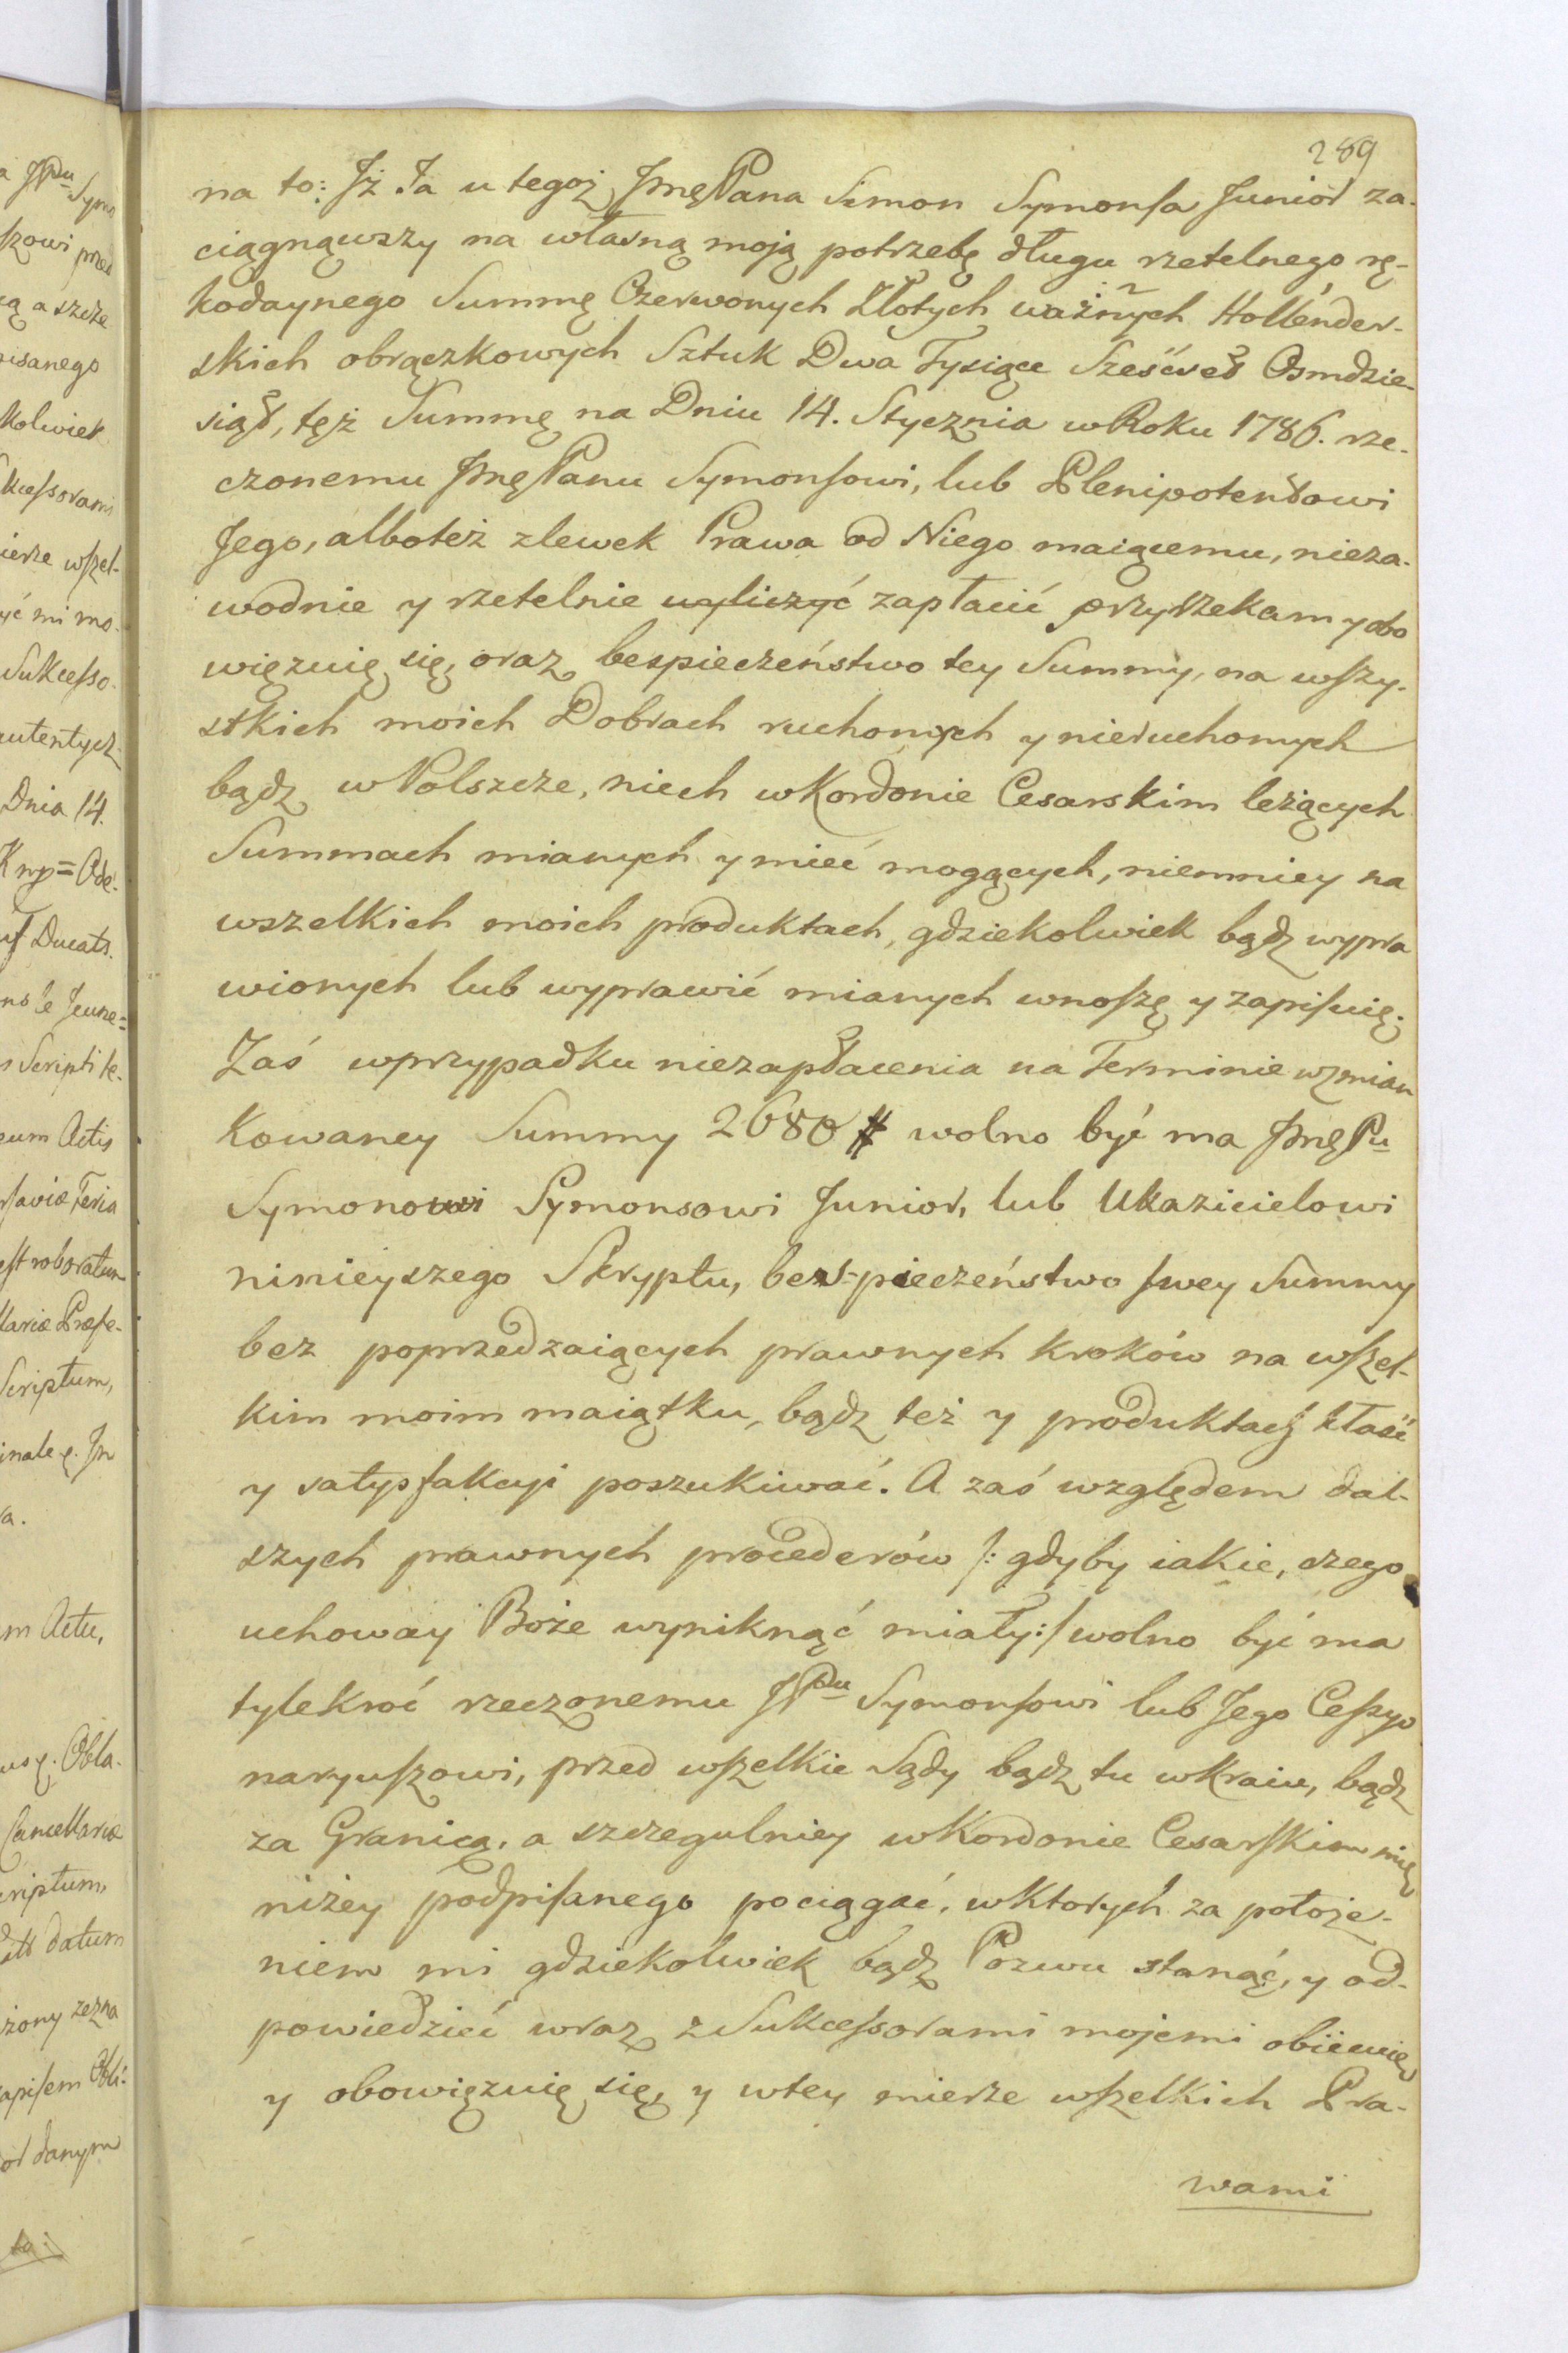 289
na to: Jż Ja u tegoż JmgPana Simon Symonsa Junior za-
ciągnąwszy na własną moją potrzebę długu rzetelnego rę-
kodaynego Summę Czerwonych Złotych ważnych Hollender-
skich obrączkowych Sztuk Dwa Tysiące Sześćset Osmdzie-
siąt, tęż Summę na Dniu 14. Stycznia w Roku 1786. rze-
czonemu JmgPanu Symonsowi, lub Plenipotentowi
Jego, albo też zlewek Prawa od Niego maiącemu, nieza-
wodnie y rzetelnie wyliczyć zapłacić przyrzekam y obo
więzuię się, oraz bespieczeństwo tey Summy, na wszy-
stkich moich Dobrach ruchomych y nieruchomych
bądz w Polszcze, niech w Kordonie Cesarskim leżących
Summach mianych y mieć mogących, niemniey na
wszelkich moich produktach, gdziekolwiek bądz wypra
wionych lub wyprawić mianych wnoszę y zapisuię.
Zaś w przypadku niezapłacenia na Terminie wzmian
kowaney Summy 2680 # wolno być ma JmgPu
Symonowi Symonsowi Junior, lub Ukazicielowi
ninieyszego Skryptu, bes-pieczeństwo swey Summy
bez poprzedzaiących prawnych kroków na wszel-
kim moim maiątku, bądz też y produktach kłaść
y satysfakcyi poszukiwać. A zaś względem dal-
szych prawnych procederów /: gdyby iakie, czego
uchoway Boże wyniknąć miały :/ wolno być ma
tylekroć rzeczonemu JPu Symonsowi lub Jego Cessyo
naryuszowi, przed wszelkie Sądy bądz tu w Kraiu, bądz
za Granicą, a szczegulniey w Kordonie Cesarskim mię
niżey podpisanego pociągać, w ktorych za położe-
niem mi gdziekolwiek bądz Pozwu stanąć, y od-
powiedzieć wraz z Sukcessorami mojemi obiecuię
y obowięzuię się, y w tey mierze wszelkich Pra-
wami